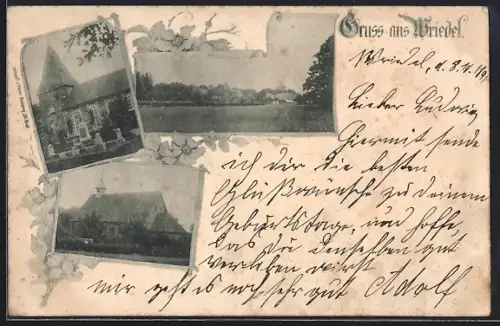 Gruss aus Wriedel.
Wriedel, d. 8.4.
Lieber Ludwig
Hiermit sende
ich dir die besten
Glückwünsche zu deinem
Geburtstage, und hoffe,
das du denselben gut
verleben wirst
mir geht es noch sehr gut Adolf